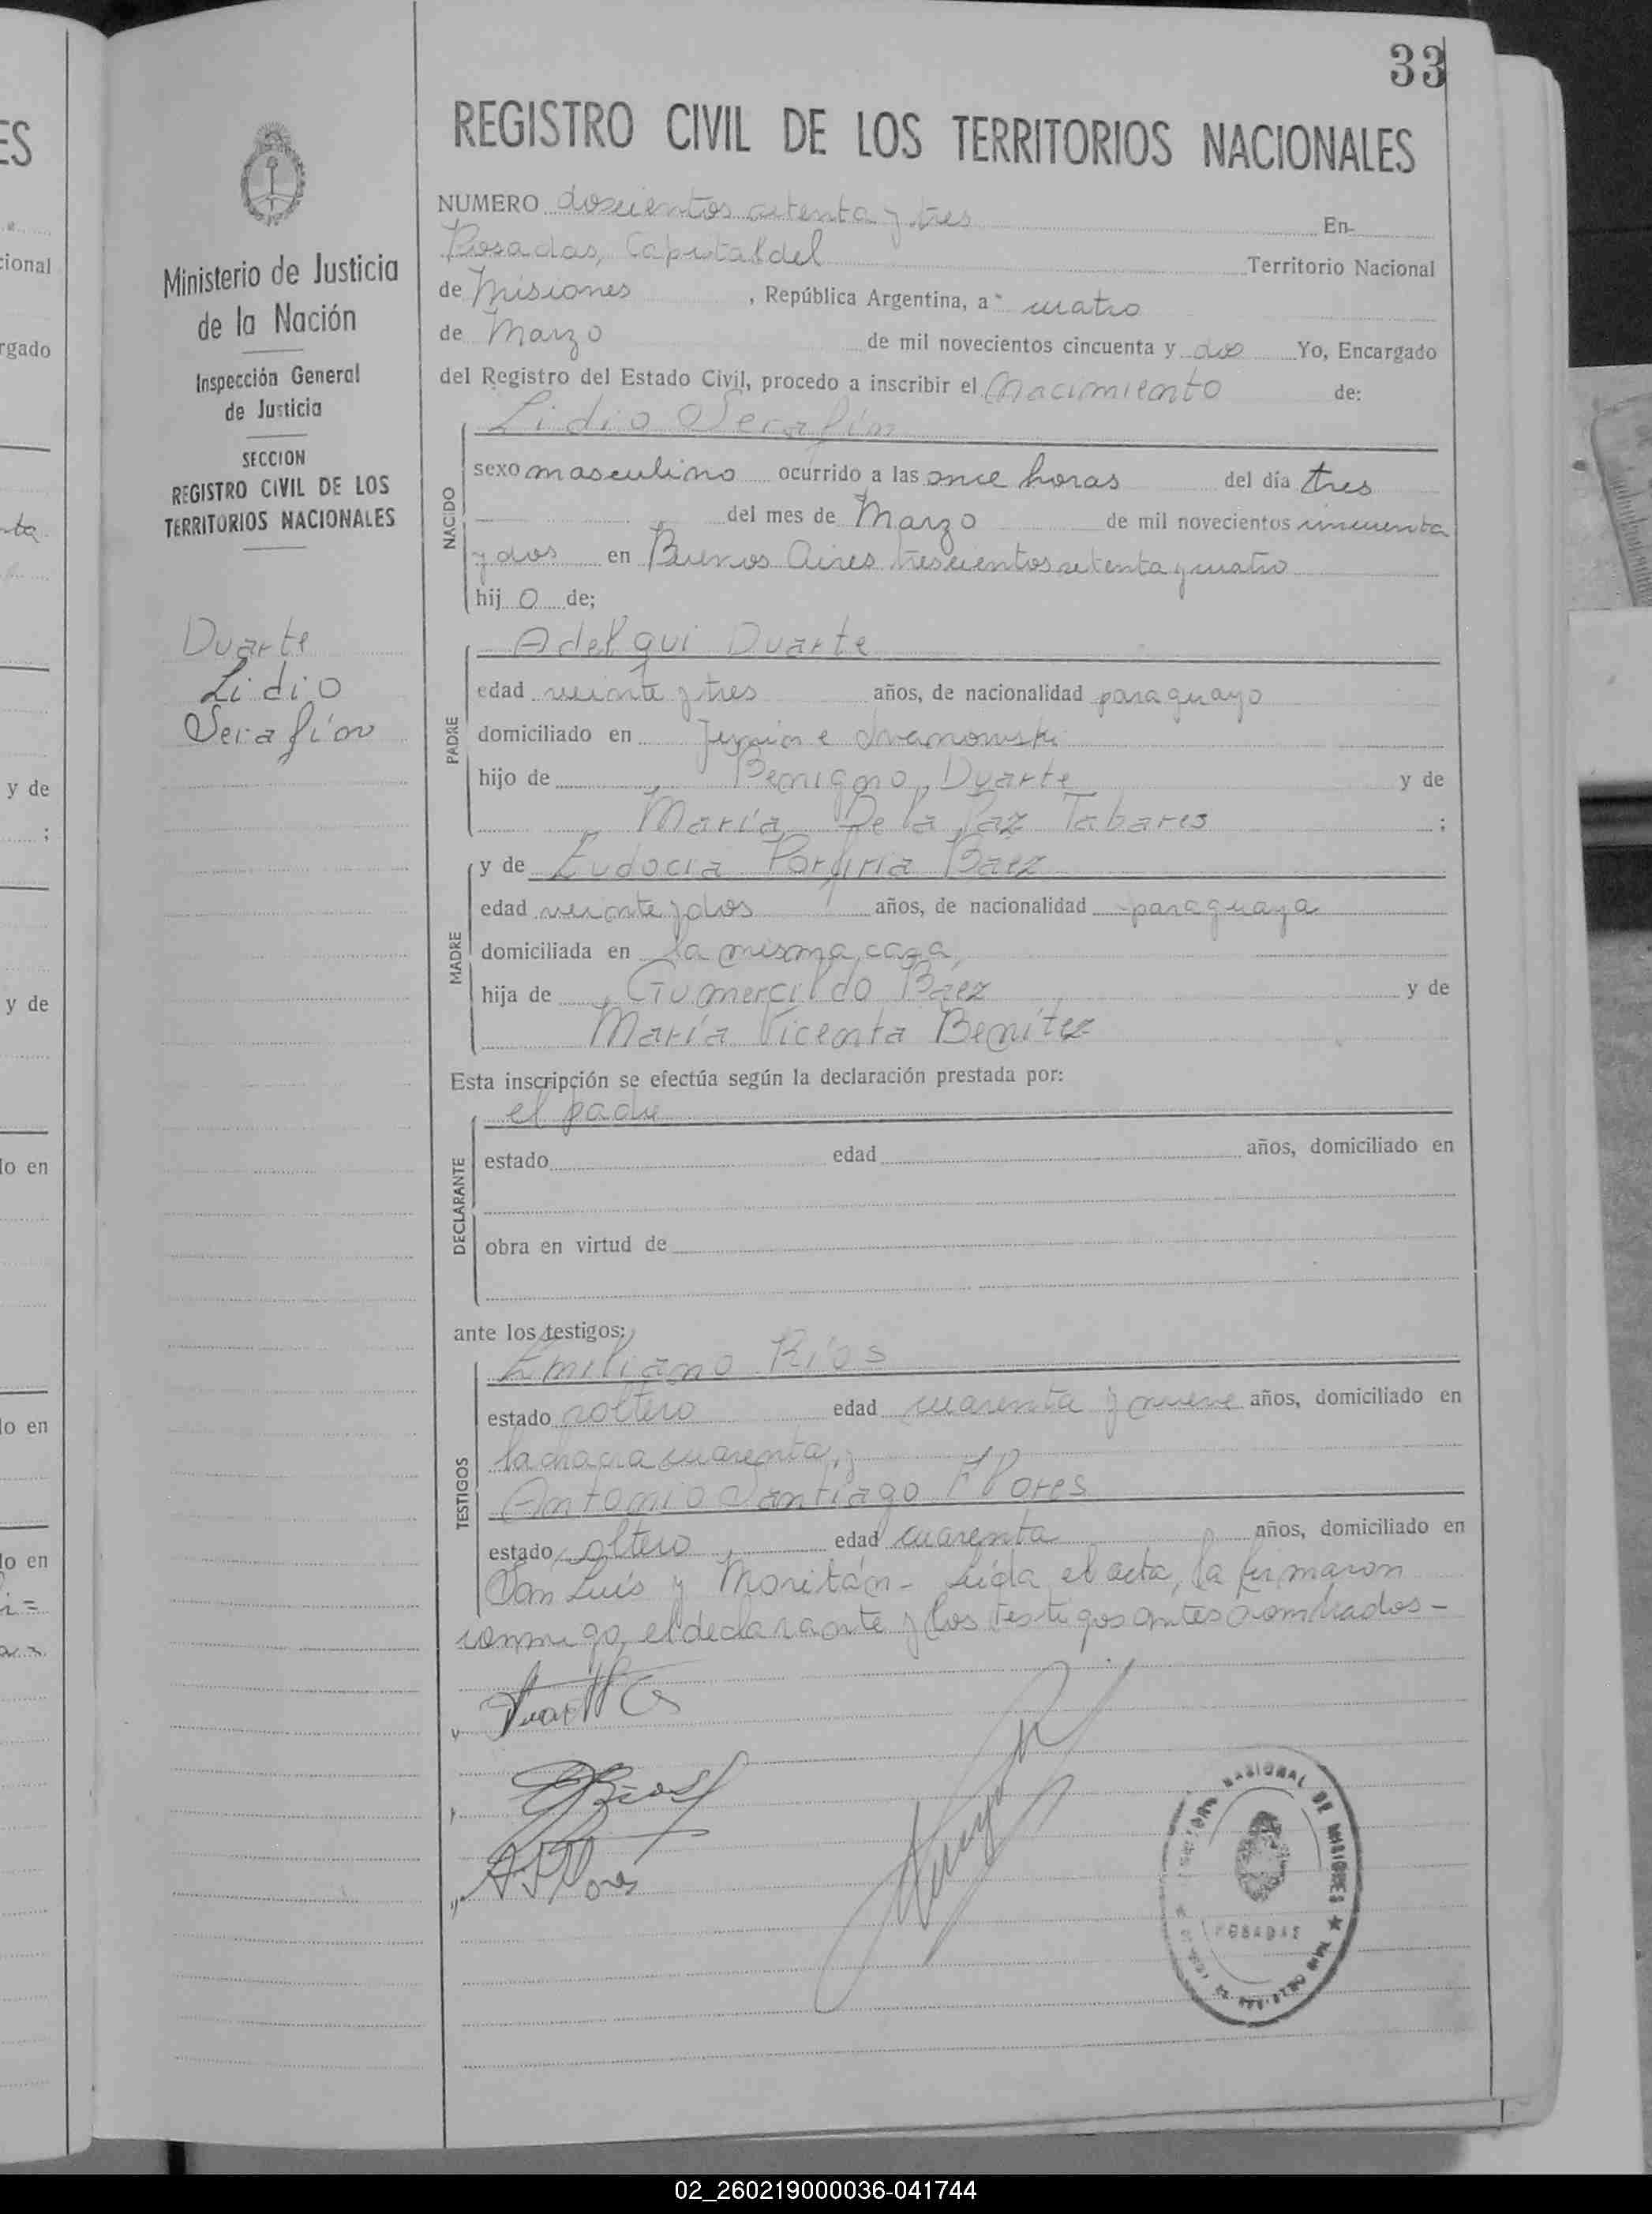 33
REGISTRO CIVIL DE LOS TERRITORIOS NACIONALES
Ministerio de Justicia
de la Nación
Inspección General
de Justicia
SECCION
REGISTRO CIVIL DE LOS
TERRITORIOS NACIONALES
Duarte
Lidio
Serafín
NUMERO doscientos setenta y tres En
Posadas, Capital del Territorio Nacional
de Misiones, República Argentina, a cuatro
de Marzo de mil novecientos cincuenta y dos Yo, Encargado
del Registro del Estado Civil, procedo a inscribir el Nacimiento de:
Lidio Serafín
NACIDO
sexo masculino ocurrido a las once horas del día tres
del mes de Marzo de mil novecientos cincuenta
y dos en Buenos Aires trescientos setenta y cuatro
hij o de;
Adelqui Duarte
PADRE
edad veinte y tres años, de nacionalidad paraguayo
domiciliado en
hijo de Benigno Duarte y de
María De la Paz Tabares ;
y de Eudocia Porfiria Baez
MADRE
edad veinte y dos años, de nacionalidad paraguaya
domiciliada en la misma casa,
hija de Gumercildo Báez y de
María Vicenta Benítez
Esta inscripción se efectúa según la declaración prestada por:
el padre
DECLARANTE
estado edad años, domiciliado en
obra en virtud de
ante los testigos:
Emiliano Ríos
TESTIGOS
estado soltero edad cuarenta y nueve años, domiciliado en
la chacra cuarenta, y
Antonio Santiago Flores
estado soltero edad cuarenta años, domiciliado en
San Luis y Moritán - Leída el acta, la firmaron
conmigo, el declarante y los testigos antes nombrados -
A. S. Flores
NACIONAL DE MISIONES
POSADAS
02_260219000036-041744